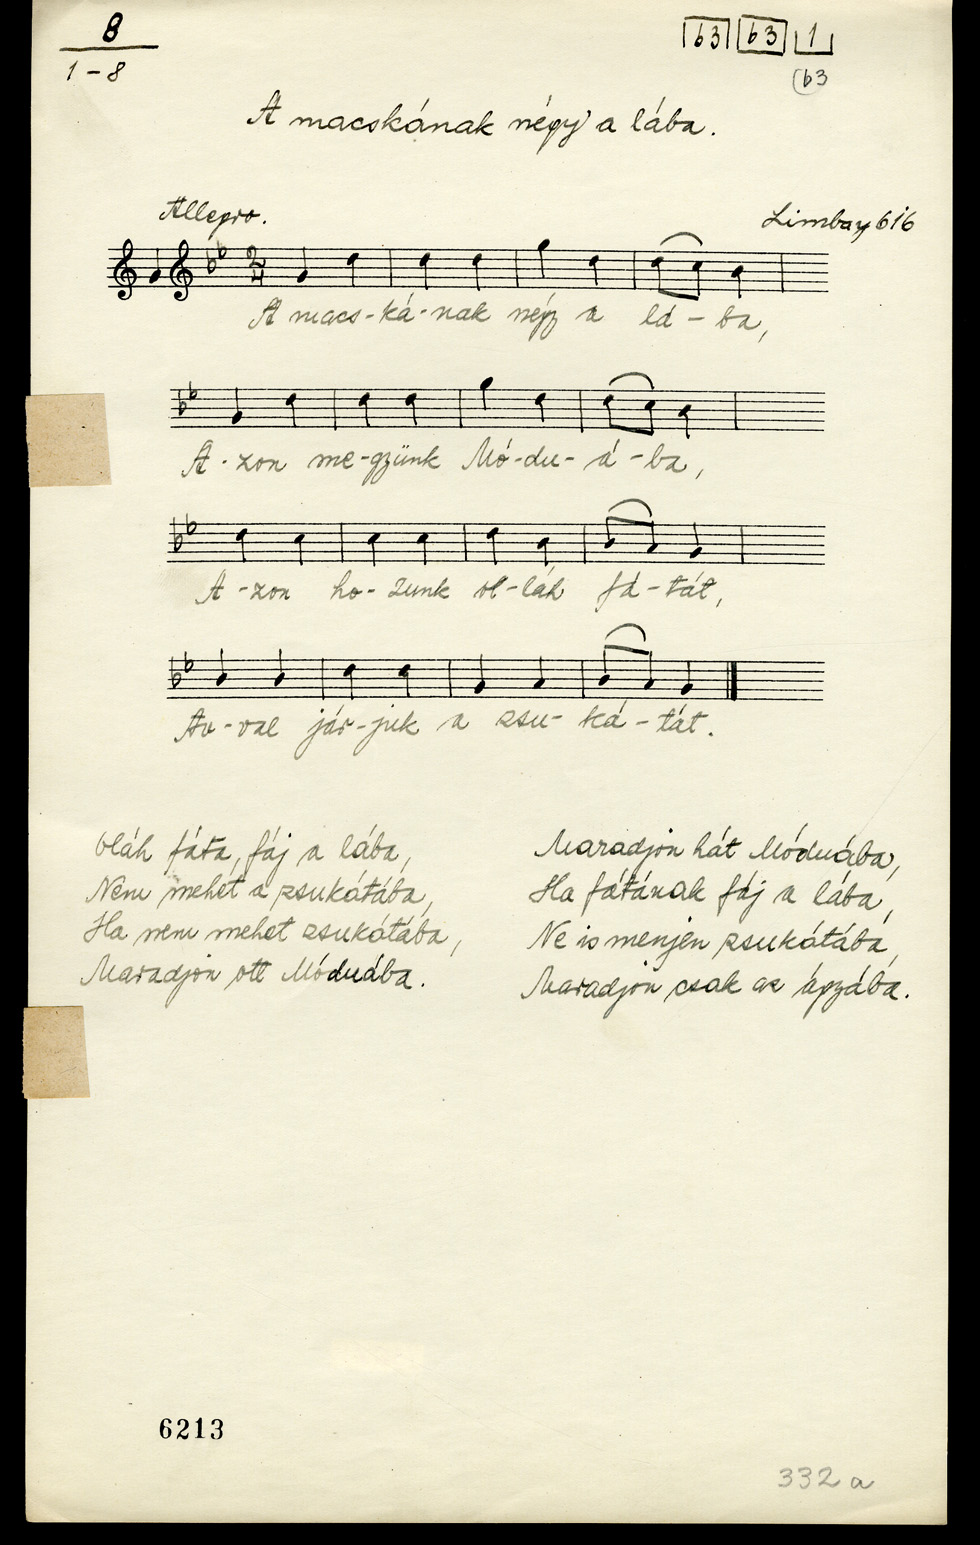 8
1-8
b3 b3 1
b3
A macskának négy a lába.
Allegro.
Limbay 616
A macs-ká-nak négy a lá-ba,
A-zon me-gyünk Mó-du-á-ba,
A-zon ho-zunk ol-láh fá-tát,
Av-val jár-juk a zsu-ká-tát.
Oláh fáta, fáj a lába,
Nem mehet a zsukátába,
Ha nem mehet zsukátába,
Maradjon ott Móduába.
Maradjon hát Móduába,
Ha fátának fáj a lába,
Ne is menjen zsukátába,
Maradjon csak az ágyába.
6213
332 a